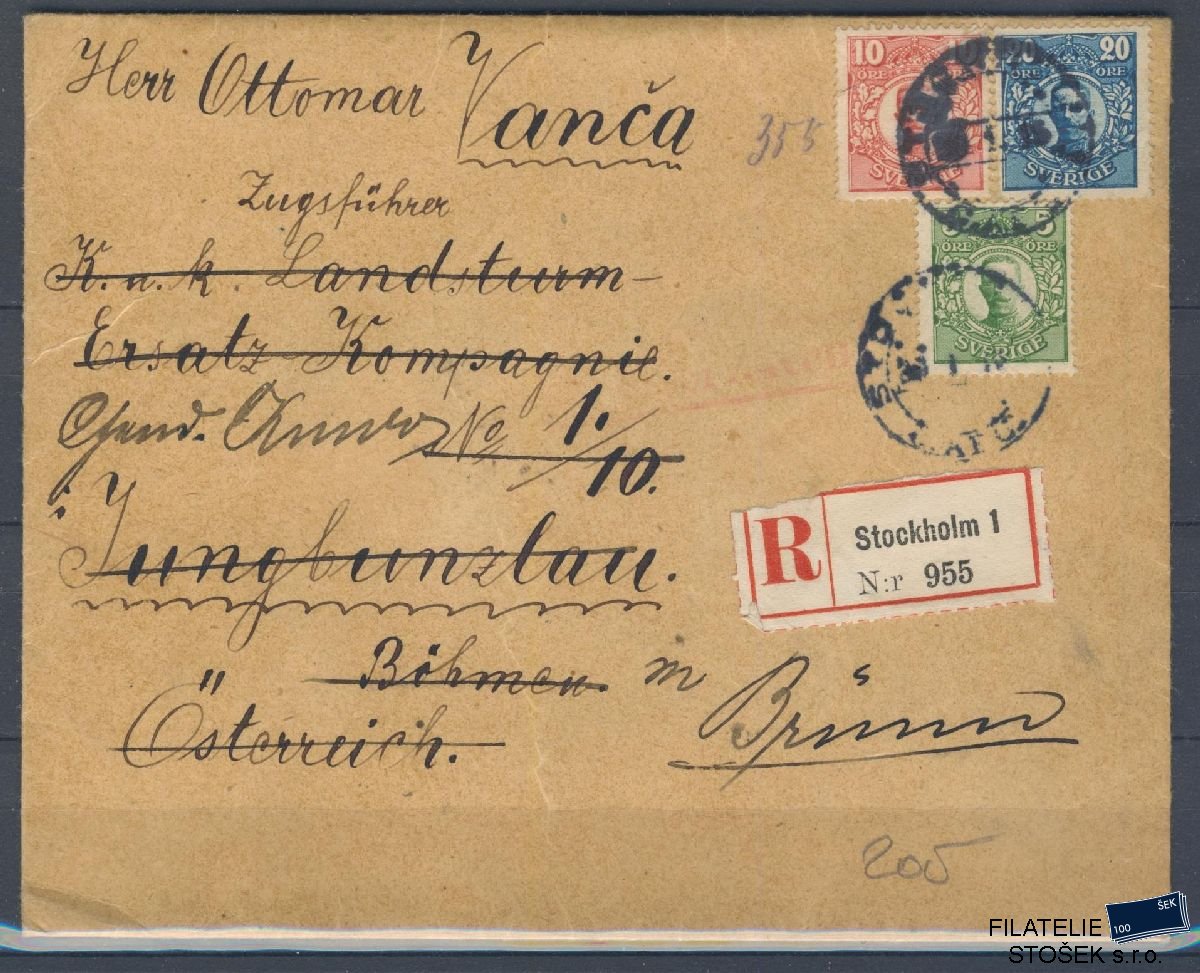 Herr Ottomar Vanča
355
Zugsführer
K. u. k. Landsturm-
Ersatz Kompagnie.
No 1./10.
Jungbunzlau.
Böhmen. in Brünn
Österreich.
10 ÖRE ÖRE SVERIGE
20 20 ÖRE ÖRE SVERIGE
5 ÖRE ÖRE SVERIGE
R Stockholm 1
N:r 955
205
FILATELIE
STOŠEK s.r.o.
100 ŠEK